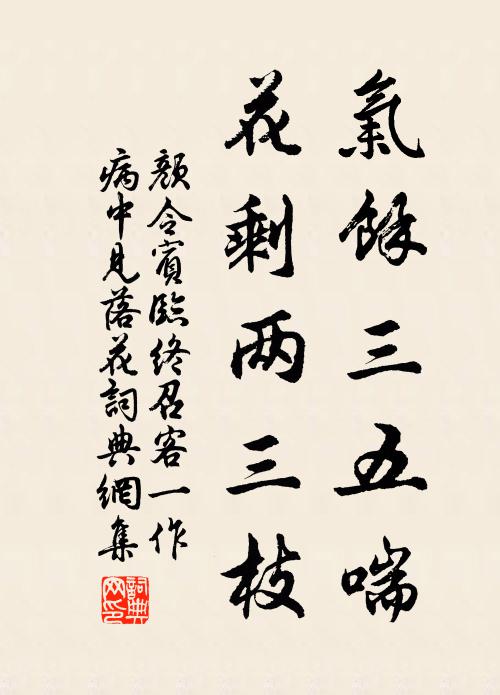 氣餘三五喘
花剩两三枝
顏令賓臨終召客一作
病中見落花詞典網集
詞典
网印